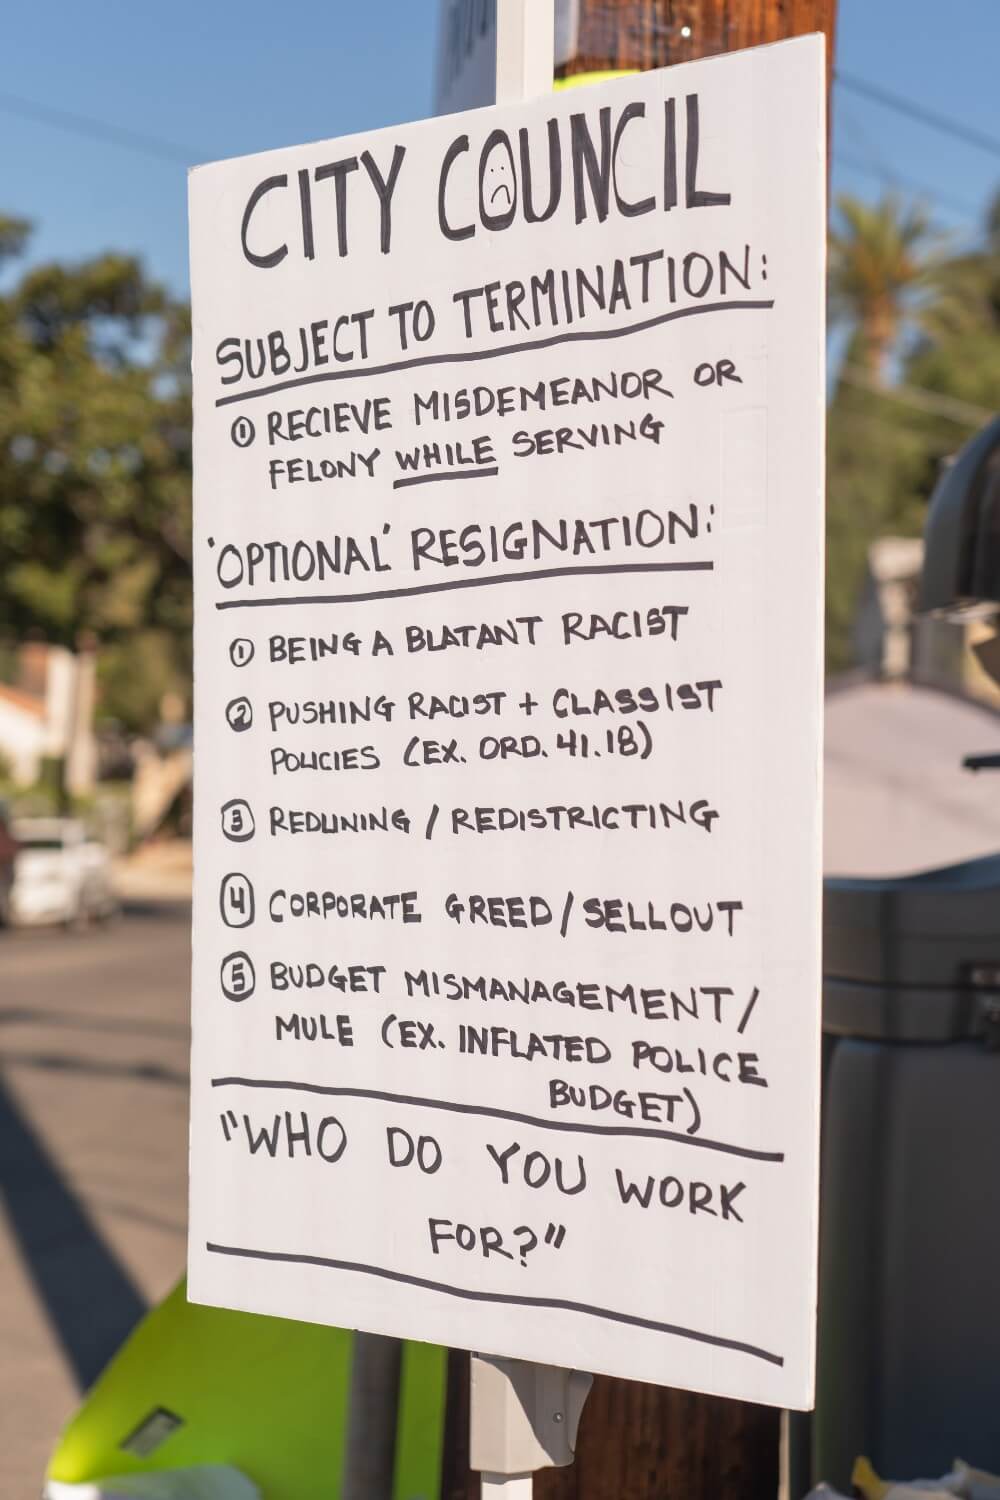 CITY COUNCIL
SUBJECT TO TERMINATION:
① RECIEVE MISDEMEANOR OR
FELONY WHILE SERVING
'OPTIONAL' RESIGNATION:
① BEING A BLATANT RACIST
② PUSHING RACIST + CLASSIST
POLICIES (EX. ORD. 41.18)
③ REDLINING / REDISTRICTING
④ CORPORATE GREED/SELLOUT
⑤ BUDGET MISMANAGEMENT/
MULE (EX. INFLATED POLICE
BUDGET)
"WHO DO YOU WORK
FOR?"